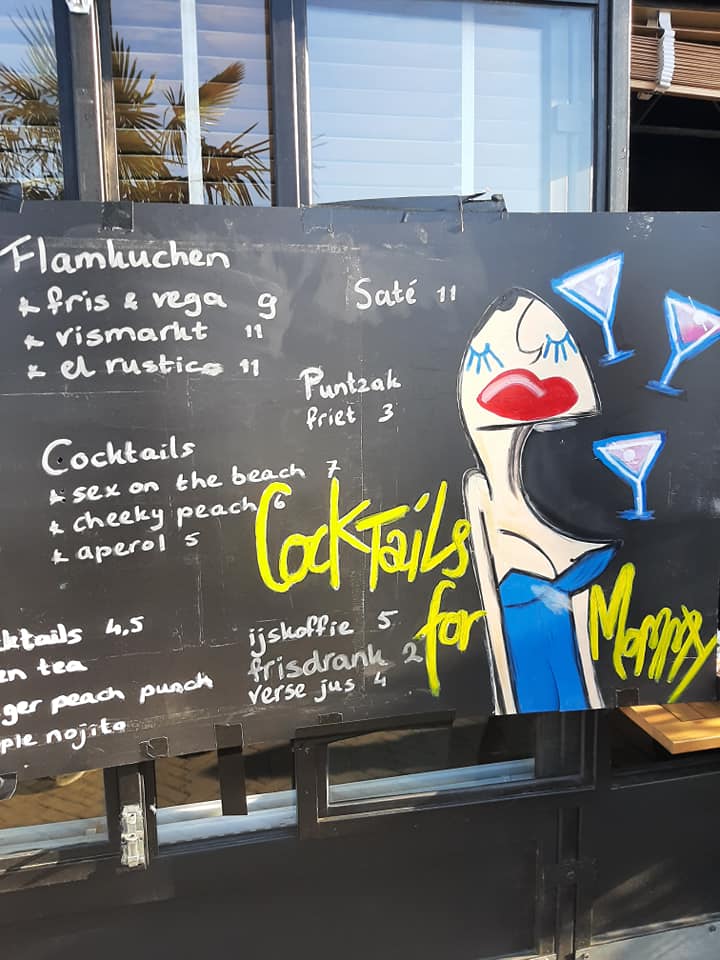 Flamkuchen
* fris & vega 9
* vismarkt 11
* el rustico 11
Saté 11
Puntzak
friet 3
Cocktails
* sex on the beach 7
* cheeky peach 6
* aperol 5
Cocktails
for Mommy
cktails 4,5
en tea
ger peach punch
ple nojito
ijskoffie 5
frisdrank 2
verse jus 4